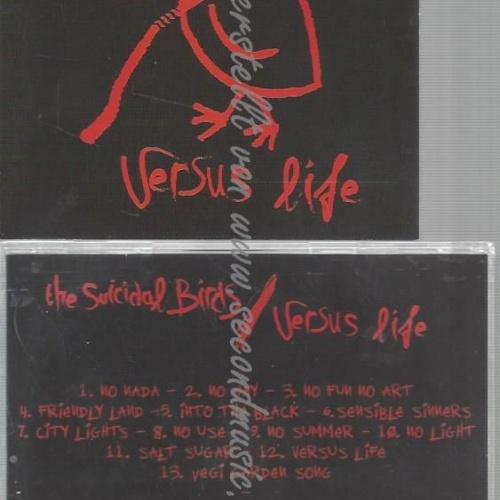 Versus life
the Suicidal Birds / Versus life
1. NO NADA - 2. NO - 3. NO FUN NO ART
4. FRIENDLY LAND - 5. INTO THE BLACK - 6. SENSIBLE SINNERS
7. CITY LIGHTS - 8. NO USE - 9. NO SUMMER - 10. NO LIGHT
11. SALT SUGAR - 12. VERSUS LIFE
13. VEGI GARDEN SONG
erstellt von www.secondmusic.